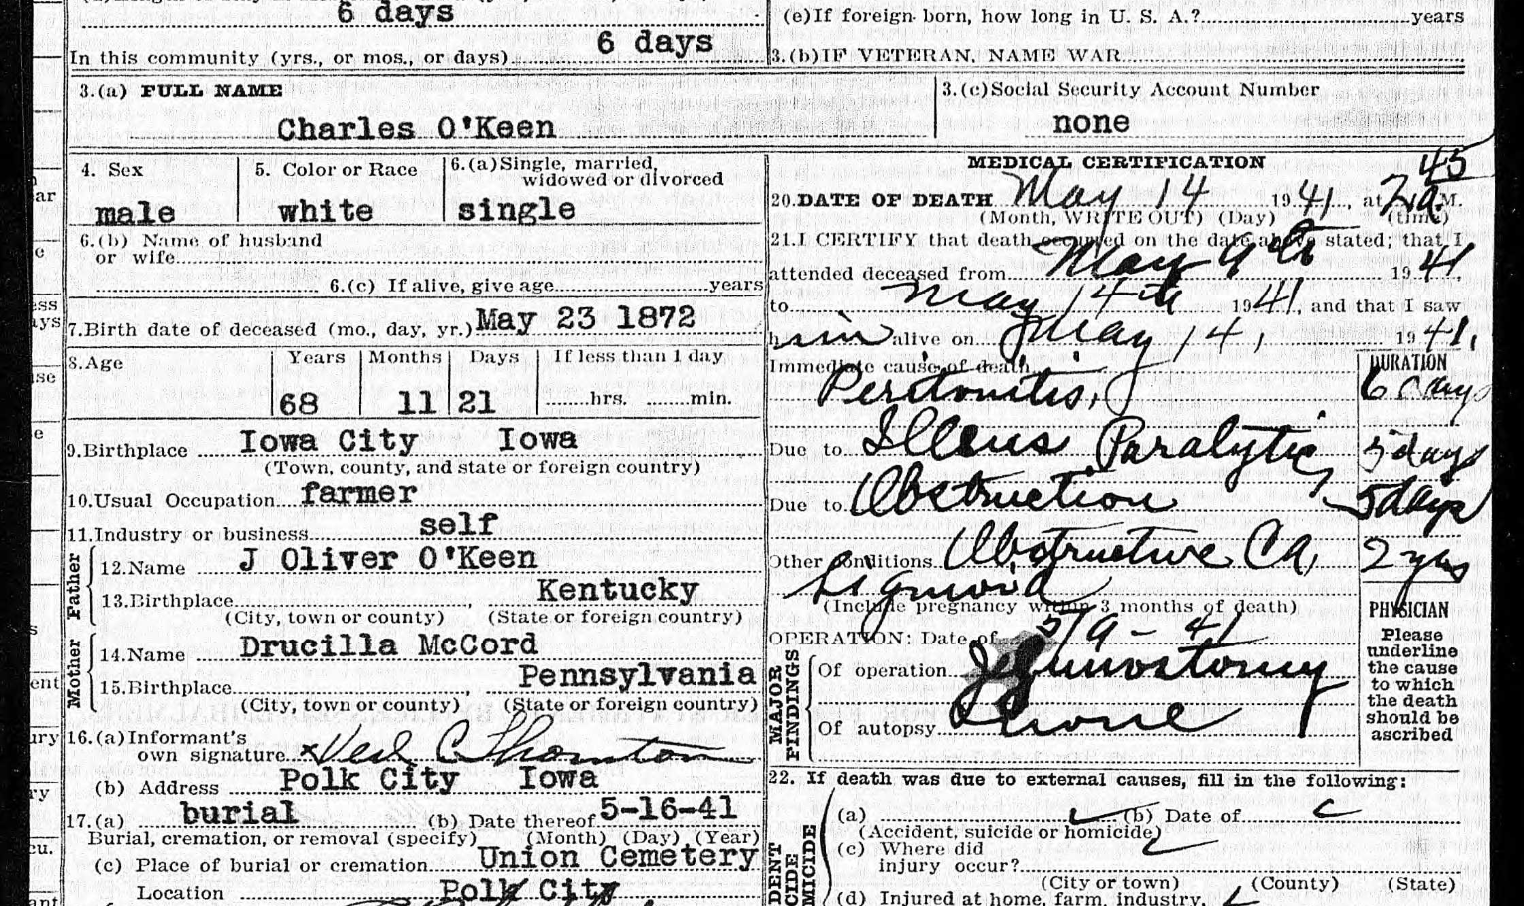 6 days
(e)If foreign born, how long in U. S. A.? years
In this community (yrs., or mos., or days) 6 days
3.(b)IF VETERAN, NAME WAR
3.(a) FULL NAME
Charles O'Keen
3.(c)Social Security Account Number
none
4. Sex
male
5. Color or Race
white
6.(a)Single, married, widowed or divorced
single
6.(b) Name of husband
or wife
6.(c) If alive, give age years
7.Birth date of deceased (mo., day, yr.) May 23 1872
8.Age
Years Months Days If less than 1 day
68 11 21 hrs. min.
9.Birthplace Iowa City Iowa
(Town, county, and state or foreign country)
10.Usual Occupation farmer
11.Industry or business self
Father
12.Name J Oliver O'Keen
13.Birthplace , Kentucky
(City, town or county) (State or foreign country)
Mother
14.Name Drucilla McCord
15.Birthplace , Pennsylvania
(City, town or county) (State or foreign country)
16.(a)Informant's
own signature x C Thornton
(b) Address Polk City Iowa
17.(a) burial (b) Date thereof 5-16-41
Burial, cremation, or removal (specify) (Month) (Day) (Year)
(c) Place of burial or cremation Union Cemetery
Location Polk City
MEDICAL CERTIFICATION
20.DATE OF DEATH May 14 1941, at 2 45 a.M.
(Month, WRITE OUT) (Day) (time)
21.I CERTIFY that death occurred on the date above stated; that I
attended deceased from May 9th 1941,
to May 14th 1941, and that I saw
him alive on May 14, 1941,
Immediate cause of death
DURATION
Peritonitis, 6 days
Due to Illeus Paralytic, 5 days
Due to Obstruction 5 days
Other conditions Obstructive Ca, 2 yrs
Sigmoid
(Include pregnancy within 3 months of death)
PHYSICIAN
Please
underline
the cause
to which
the death
should be
ascribed
OPERATION: Date of 5/9-41
MAJOR FINDINGS
Of operation Jejunostomy
Of autopsy none
22. If death was due to external causes, fill in the following:
(a) (b) Date of
(Accident, suicide or homicide)
(c) Where did
injury occur?
(City or town) (County) (State)
(d) Injured at home, farm, industry,